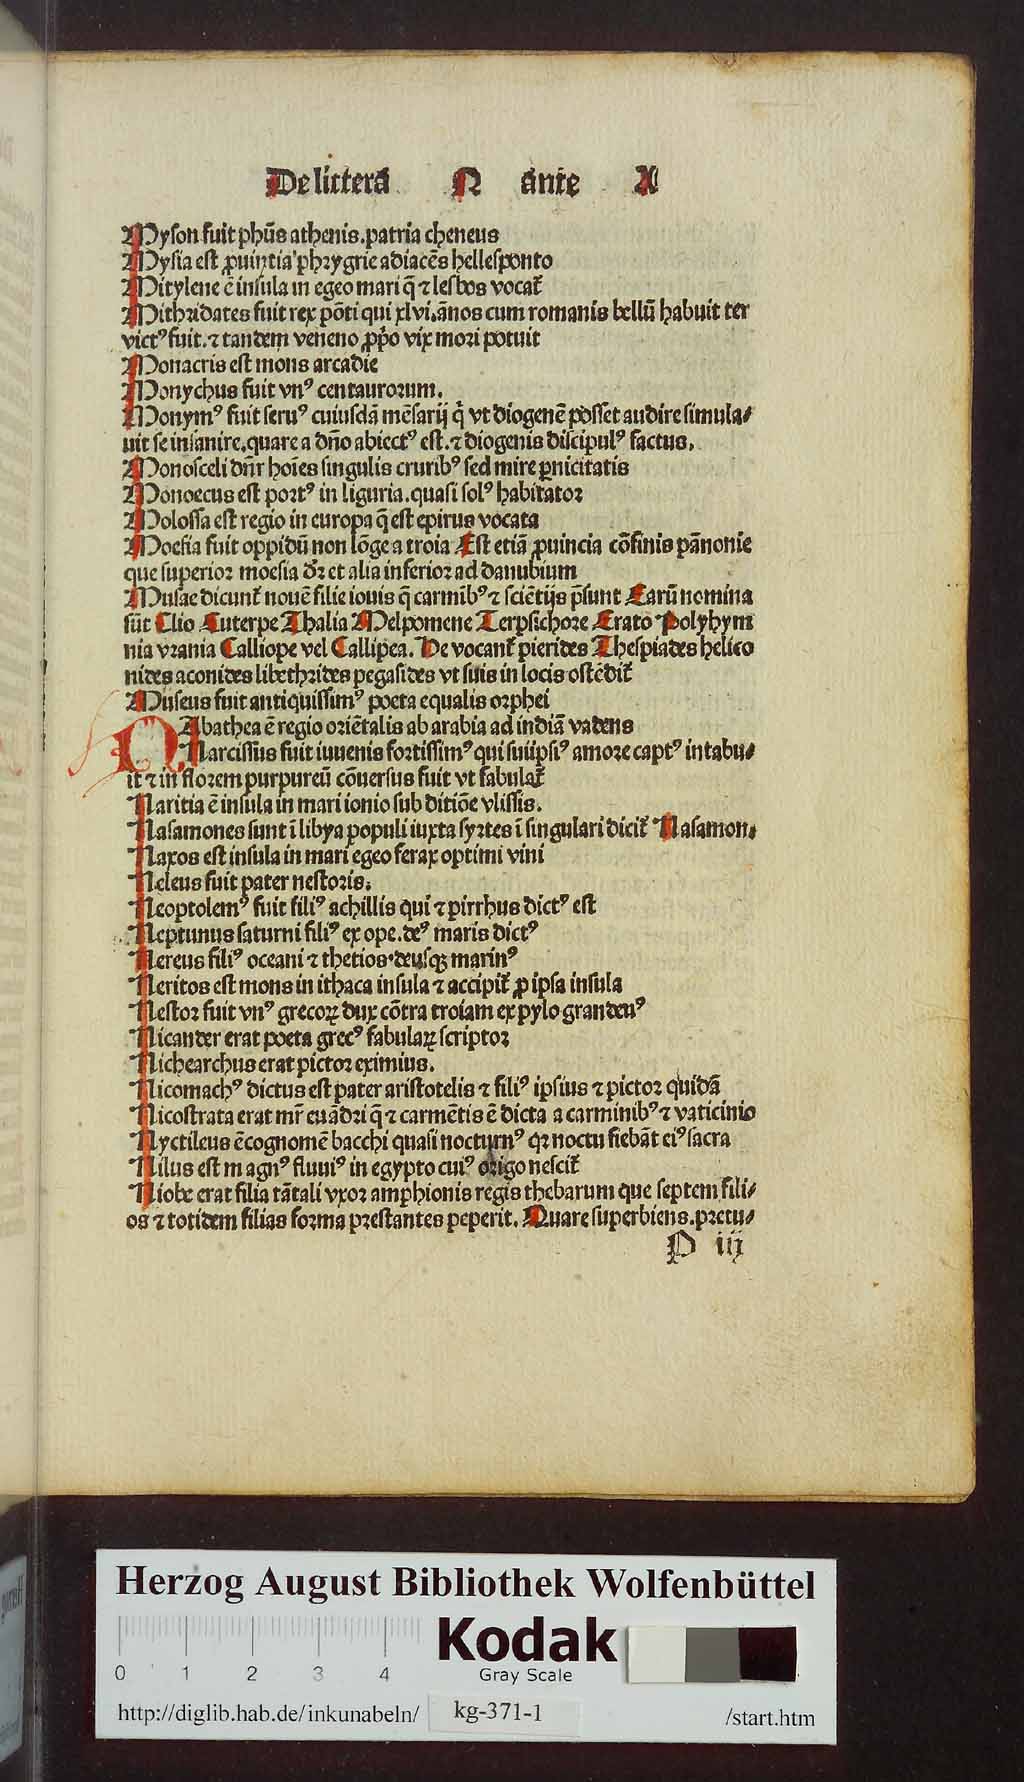 De littera N ante A
Myson fuit phūs athenis.patria cheneus
Mysia est ꝓuintia phrygrie adiacēs hellesponto
Mitylene ē insula in egeo mari q̄ ⁊ lesbos vocat᷑
Mithridates fuit rex pōti qui xlvi.ānos cum romanis bellū habuit ter
victꝰ fuit.⁊ tandem veneno ꝓprio vix mori potuit
Monacris est mons arcadie
Monychus fuit vnꝰ centaurorum.
Monymꝰ fuit seruꝰ cuiusdā mēsarij q̇ vt diogenē posset audire simula⸗
uit se insanire.quare a dño abiectꝰ est.⁊ diogenis discipulꝰ factus.
Monosceli dñr hoīes singulis cruribꝰ sed mire ꝑnicitatis
Monoecus est portꝰ in liguria.quasi solꝰ habitator
Molossa est regio in europa q̄ est epirus vocata
Moesia fuit oppidū non lōge a troia Est etiā ꝓuincia cōfinis pānonie
que superior moesia dr̄ et alia inferior ad danubium
Musae dicunt᷑ nouē filie iouis q̄ carmībꝰ ⁊ sciētijs p̄sunt Earū nomina
sūt Clio Euterpe Thalia Melpomene Terpsichore Erato Polyhym
nia vrania Calliope vel Callipea. De vocant᷑ pierides Thespiades helico
nides aconides libethrides pegasides vt suis in locis ostēdit᷑
Museus fuit antiquissimꝰ poeta equalis orphei
NAbathea ē regio oriētalis ab arabia ad indiā vadens
Narcissus fuit iuuenis fortissimꝰ qui suiipsiꝰ amore captꝰ intabu⸗
it ⁊ in florem purpureū cōuersus fuit vt fabulat᷑
Naritia ē insula in mari ionio sub ditiōe vlissis.
Nasamones sunt ī libya populi iuxta syrtes ī singulari dicit᷑ Nasamon.
Naxos est insula in mari egeo ferax optimi vini
Neleus fuit pater nestoris.
Neoptolemꝰ fuit filiꝰ achillis qui ⁊ pirrhus dictꝰ est
Neptunus saturni filiꝰ ex ope.deꝰ maris dictꝰ
Nereus filiꝰ oceani ⁊ thetios.deusqꝫ marinꝰ
Neritos est mons in ithaca insula ⁊ accipit᷑ ꝓ ipsa insula
Nestor fuit vnꝰ grecoꝝ dux cōtra troiam ex pylo grandeuꝰ
Nicander erat poeta grecꝰ fabulaꝝ scriptor
Nichearchus erat pictor eximius.
Nicomachꝰ dictus est pater aristotelis ⁊ filiꝰ ipsius ⁊ pictor quidā
Nicostrata erat mr̄ euādri q̄ ⁊ carmētis ē dicta a carminibꝰ ⁊ vaticinio
Nyctileus ē cognomē bacchi quasi nocturnꝰ qꝛ noctu fiebāt eiꝰ sacra
Nilus est magnꝰ fluuiꝰ in egypto cuiꝰ origo nescit᷑
Niobe erat filia tātali vxor amphionis regis thebarum que septem fili⸗
os ⁊ totidem filias forma prestantes peperit. Quare superbiens.pretu⸗
P iij
Herzog August Bibliothek Wolfenbüttel
Kodak
Gray Scale
0 1 2 3 4
http://diglib.hab.de/inkunabeln/ kg-371-1 /start.htm